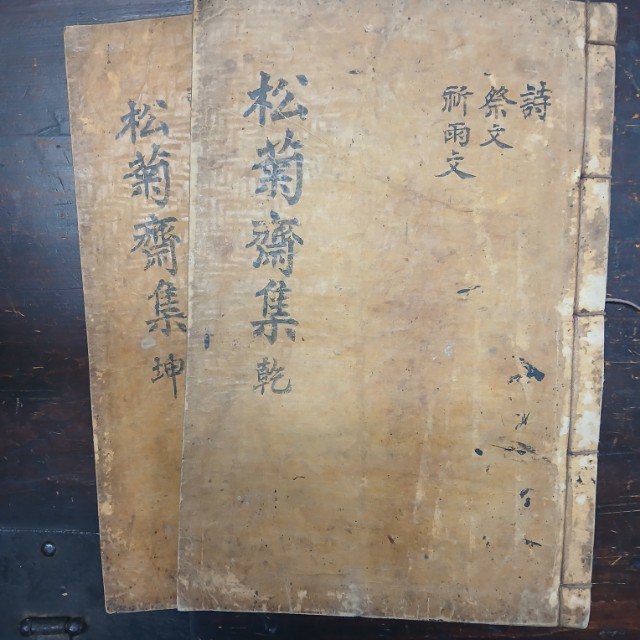 詩
祭文
祈雨文
松菊齋集 乾
松菊齋集 坤